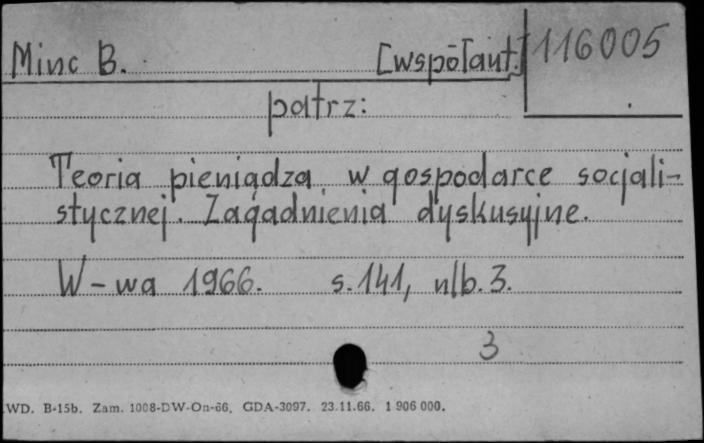 Minc B. [współaut.] 116005
patrz:
Teoria pieniądza w gospodarce socjali-
stycznej. Zagadnienia dyskusyjne.
W-wa 1966. s. 141, nlb. 3.
3
WD. B-15b. Zam. 1008-DW-On-66. GDA-3097. 23.11.66. 1 906 000.